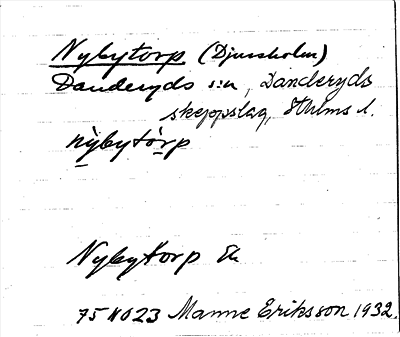 Nybytorp (Djursholm)
Danderyds s:n, Danderyds
skeppslag, Sthlms l.
nybytòrp
Nybytorp Ek
75 NO 23 Manne Eriksson 1932.